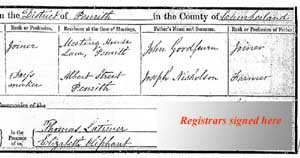 in the District of Penrith in the County of Cumberland
Rank or Profession. Residence at the time of Marriage. Father's Name and Surname. Rank or Profession of Father.
Joiner Meeting House Lane, Penrith John Goodfawn Joiner
Dress maker Albert Street Penrith Joseph Nicholson Farmer
Ceremonies of the
in the Presence of us,
Thomas Latimer
Elizabeth Oliphant
Registrars signed here